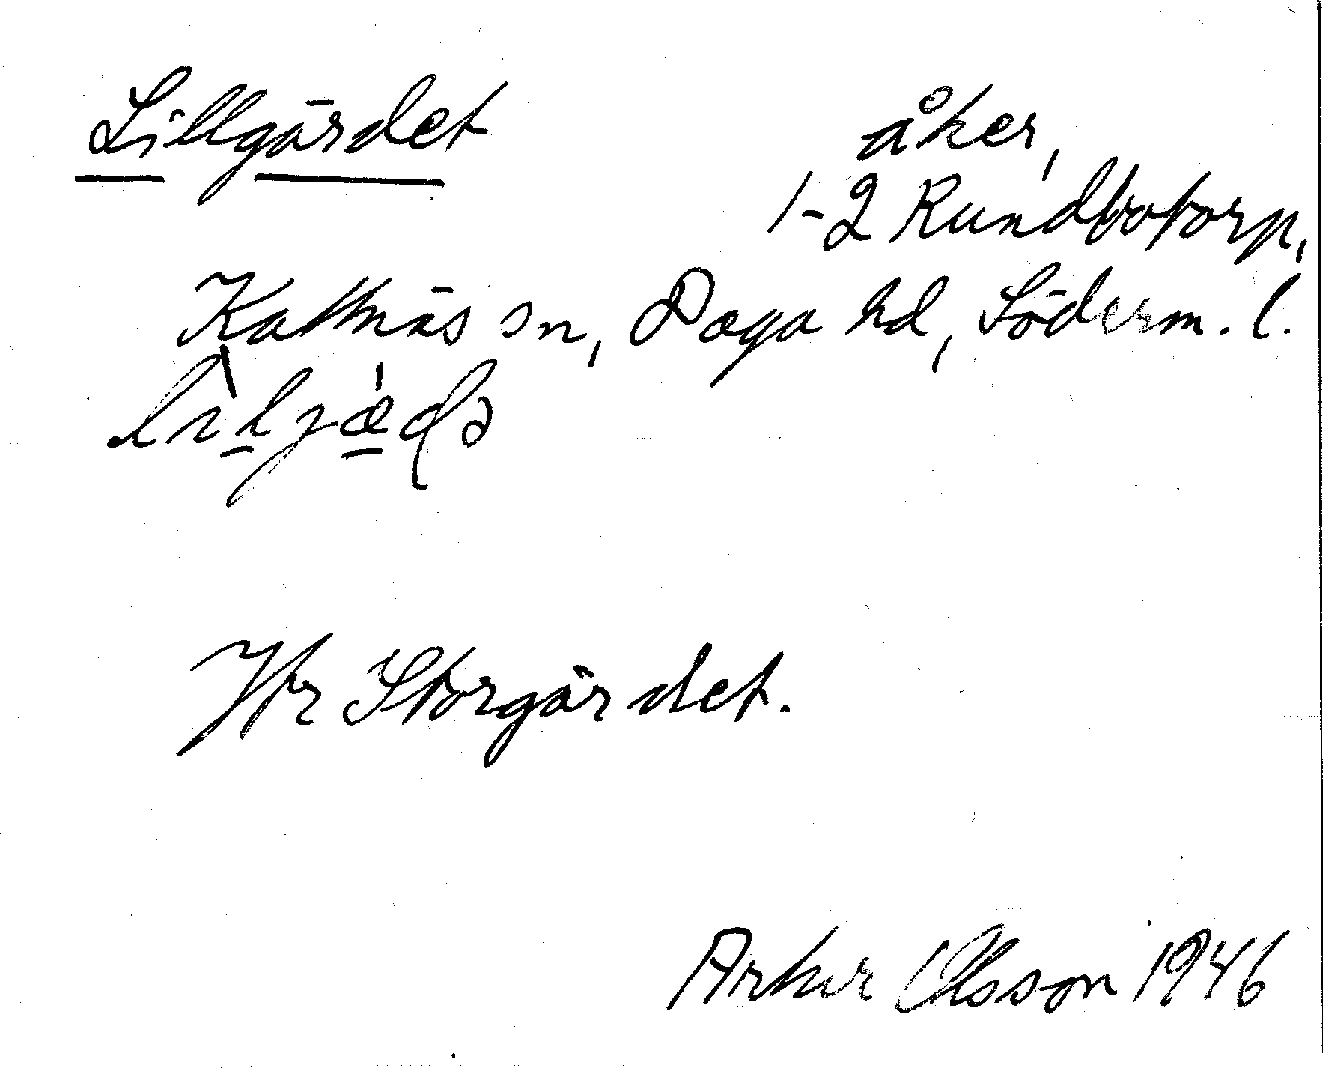 Lillgärdet
åker,
1-2 Rundbotorp,
Kattnäs sn, Daga hd, Söderm. l.
Jfr Storgärdet.
Artur Olsson 1946